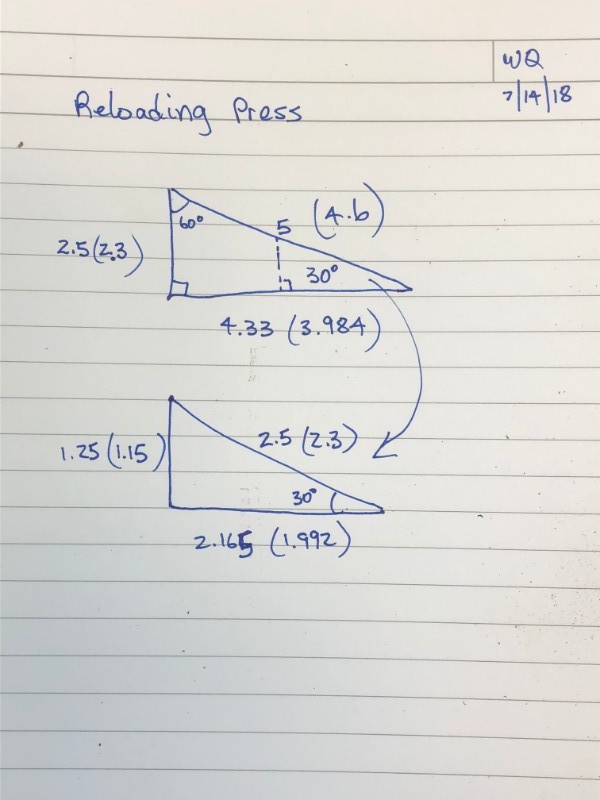 WQ
7/14/18
Reloading Press
60°
5 (4.6)
2.5 (2.3)
30°
4.33 (3.984)
1.25 (1.15)
2.5 (2.3)
30°
2.165 (1.992)